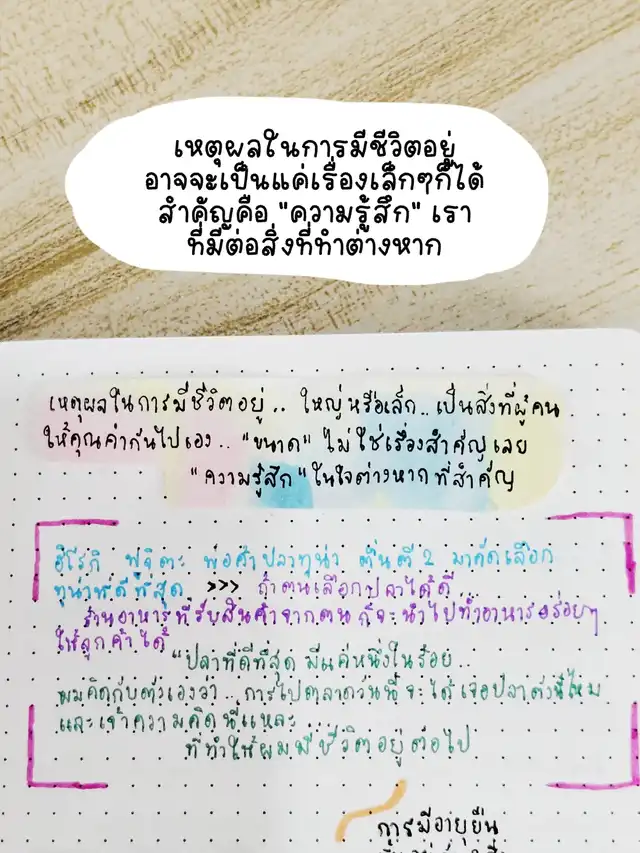 เหตุผลในการมีชีวิตอยู่
อาจจะเป็นแค่เรื่องเล็กๆก็ได้
สำคัญคือ "ความรู้สึก" เรา
ที่มีต่อสิ่งที่ทำต่างหาก
เหตุผลในการมีชีวิตอยู่.. ใหญ่หรือเล็ก..เป็นสิ่งที่ผู้คน
ให้คุณค่ากันไปเอง.. "ขนาด" ไม่ใช่เรื่องสำคัญเลย
"ความรู้สึก" ในใจต่างหากที่สำคัญ
ฮิโรกิ ฟูจิตะ พ่อค้าปลาทูน่า ตื่นตี 2 มาคัดเลือก
ทูน่าที่ดีที่สุด >>> ถ้าตนเลือกปลาได้ดี...
ร้านอาหารที่รับสินค้าจากตน ก็จะนำไปทำอาหารอร่อยๆ
ให้ลูกค้าได้
"ปลาที่ดีที่สุด มีแค่หนึ่งในร้อย..
ผมคิดกับตัวเองว่า.. การไปตลาดวันนี้ จะได้เจอปลาตัวนี้ไหม
และเจ้าความคิดนี่แหละ...
ที่ทำให้ผมมีชีวิตอยู่ต่อไป
การมีอายุยืน